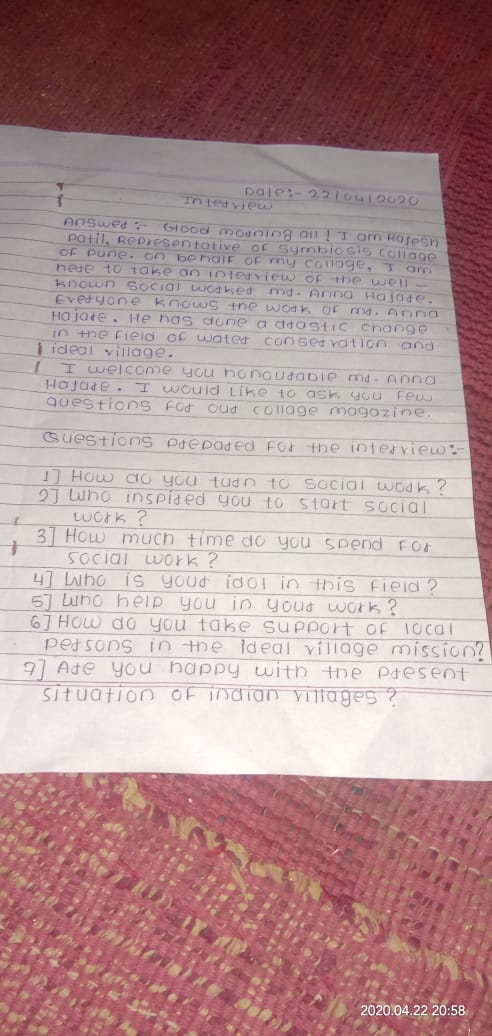 Date:- 22/04/2020
Interview
Answer:- Good morning all! I am Rajesh
Patil, Representative of Symbiosis collage
of Pune. on behalf of my collage, I am
here to take an interview of the well-
known social worker mr. Anna Hajare.
Everyone knows the work of mr. Anna
Hajare. He has done a drastic change
in the field of water conservation and
ideal village.
I welcome you honourable mr. Anna
Hajare. I would like to ask you few
questions for our collage magazine.
Questions prepared for the interview:-
1] How do you turn to social work?
2] Who inspired you to start social
work?
3] How much time do you spend for
social work?
4] Who is your idol in this field?
5] Who help you in your work?
6] How do you take support of local
persons in the Ideal village mission?
7] Are you happy with the present
situation of indian villages?
2020.04.22 20:58